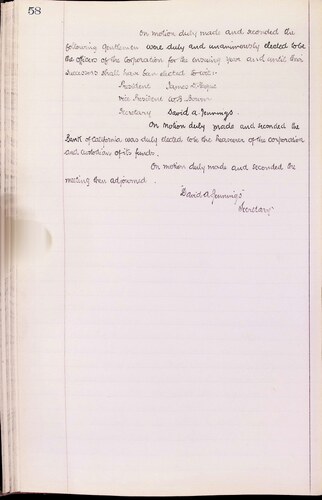 58
On motion duly made and seconded the
following gentlemen were duly and unanimously elected to be
the officers of the Corporation for the ensuing year and until their
successors shall have been elected to wit:-
President James
Vice President W.B.
Secretary David A. Jennings.
On motion duly made and seconded the
Bank of California was duly elected to be the treasurer of the corporation
and custodian of its funds.
On motion duly made and seconded the
meeting then adjourned.
"David A Jennings"
Secretary